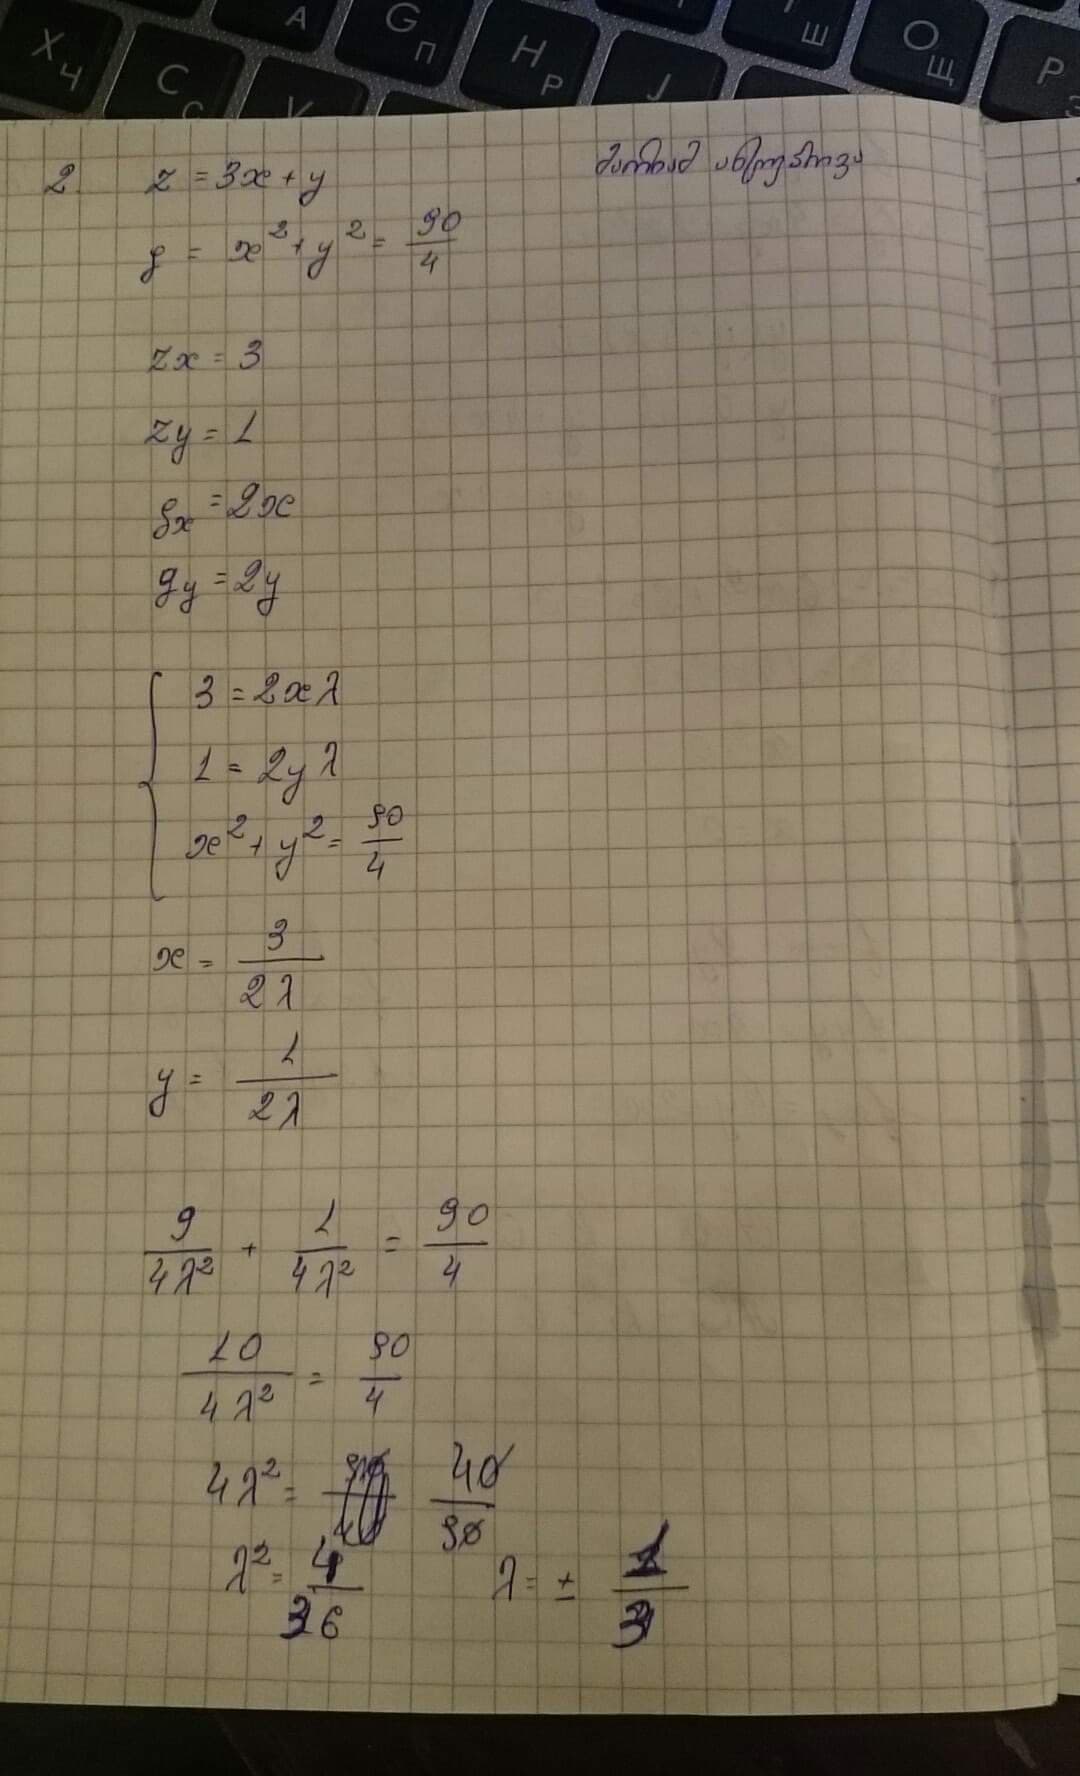 Х Ч
С
А
G П
H Р
J
Ш
О Щ
Р З
2. z = 3x + y
მარიამ
g = x² + y² = 90/4
zx = 3
zy = 1
gx = 2x
gy = 2y
3 = 2xλ
1 = 2yλ
x² + y² = 90/4
x = 3/2λ
y = 1/2λ
9/4λ² + 1/4λ² = 90/4
10/4λ² = 90/4
4λ² = 40/90
λ² = 4/36 λ = ± 1/3